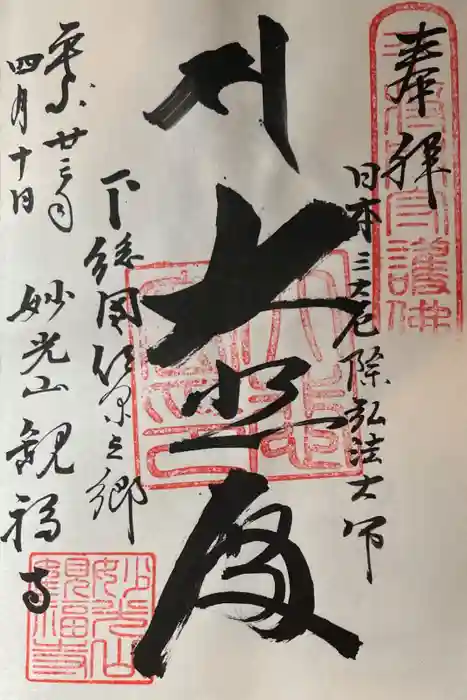 奉拝
日本三大厄除弘法大師
大悲殿
下総國佐原之郷
妙光山 観福寺
平成廿三年
四月十日
守護佛
妙光山
観福寺